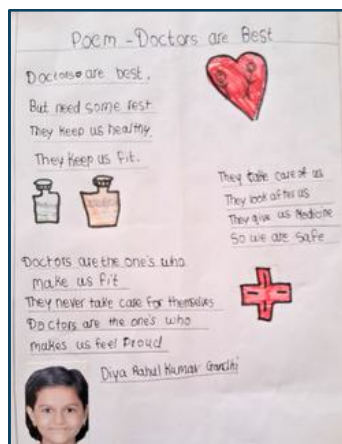 Poem - Doctors are Best
Doctors are best,
But need some rest
They keep us healthy,
They keep us fit.
They take care of us
They look after us
They give us Medicine
So we are safe
Doctors are the one's who
make us fit
They never take care for themselves
Doctors are the one's who
makes us feel Proud
Diya Rahul Kumar Gandhi